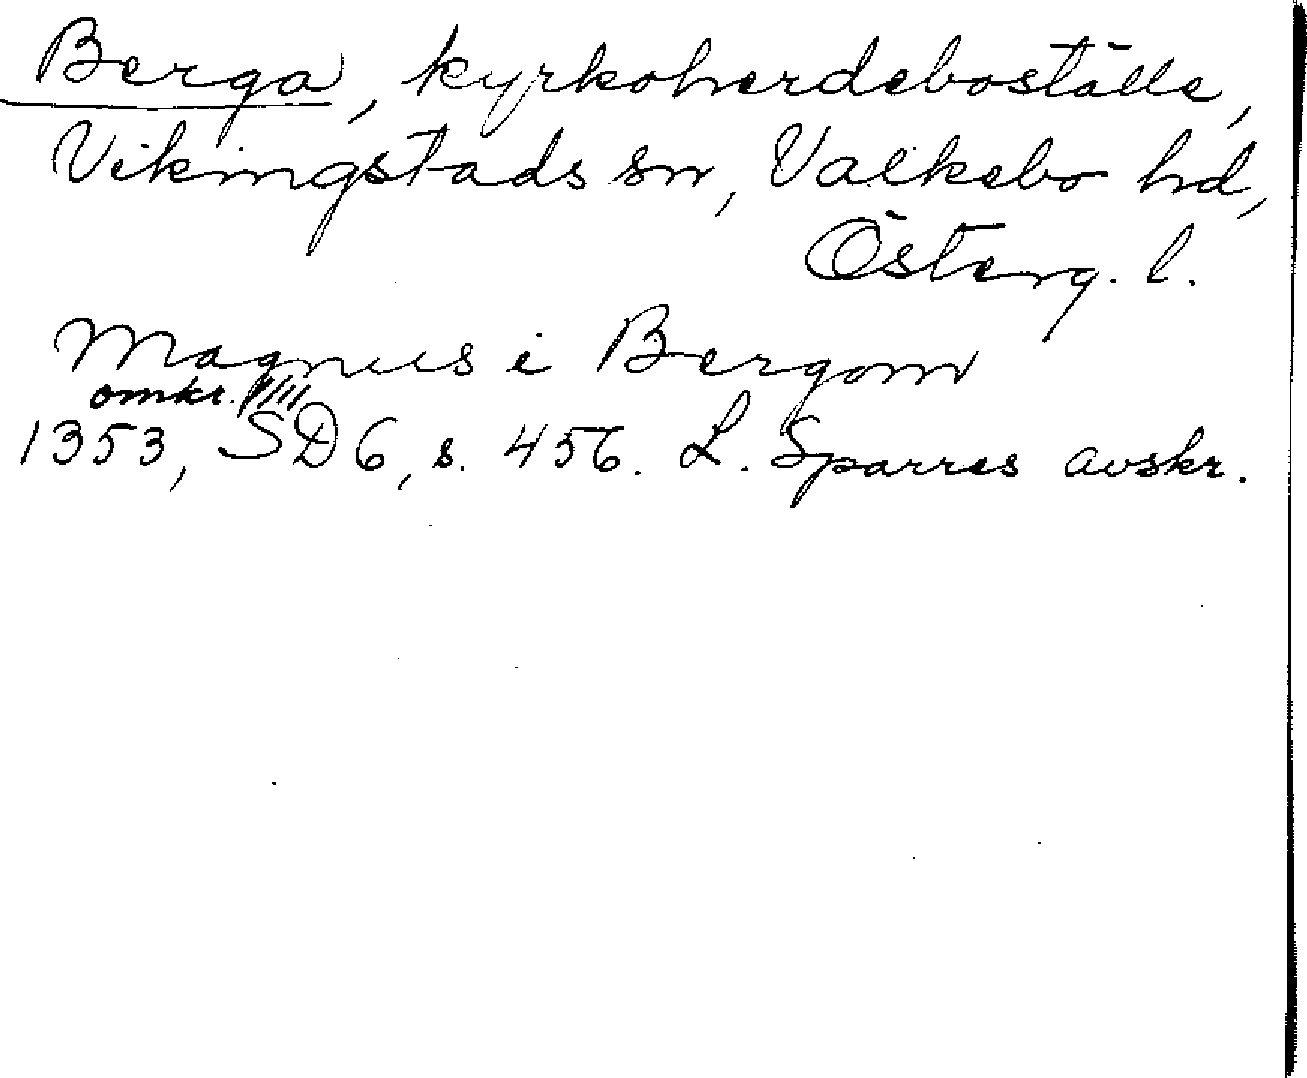 Berga, kyrkoherdeboställe,
Vikingstads sn, Valkebo hd,
Österg. l.
Magnus i Bergom
omkr.
1353, SD 6, s. 456. L. Sparres avskr.